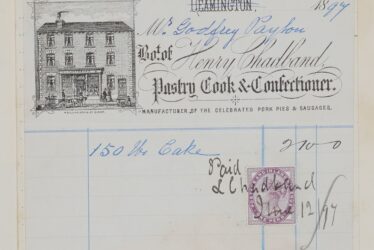 LEAMINGTON, 1897
Mr Godfrey Payton
Bot. of Henry Chadband,
Pastry Cook & Confectioner.
MANUFACTURER OF THE CELEBRATED PORK PIES & SAUSAGES.
150 lbs Cake 2 10 0
Paid
Chadband
June 12/97